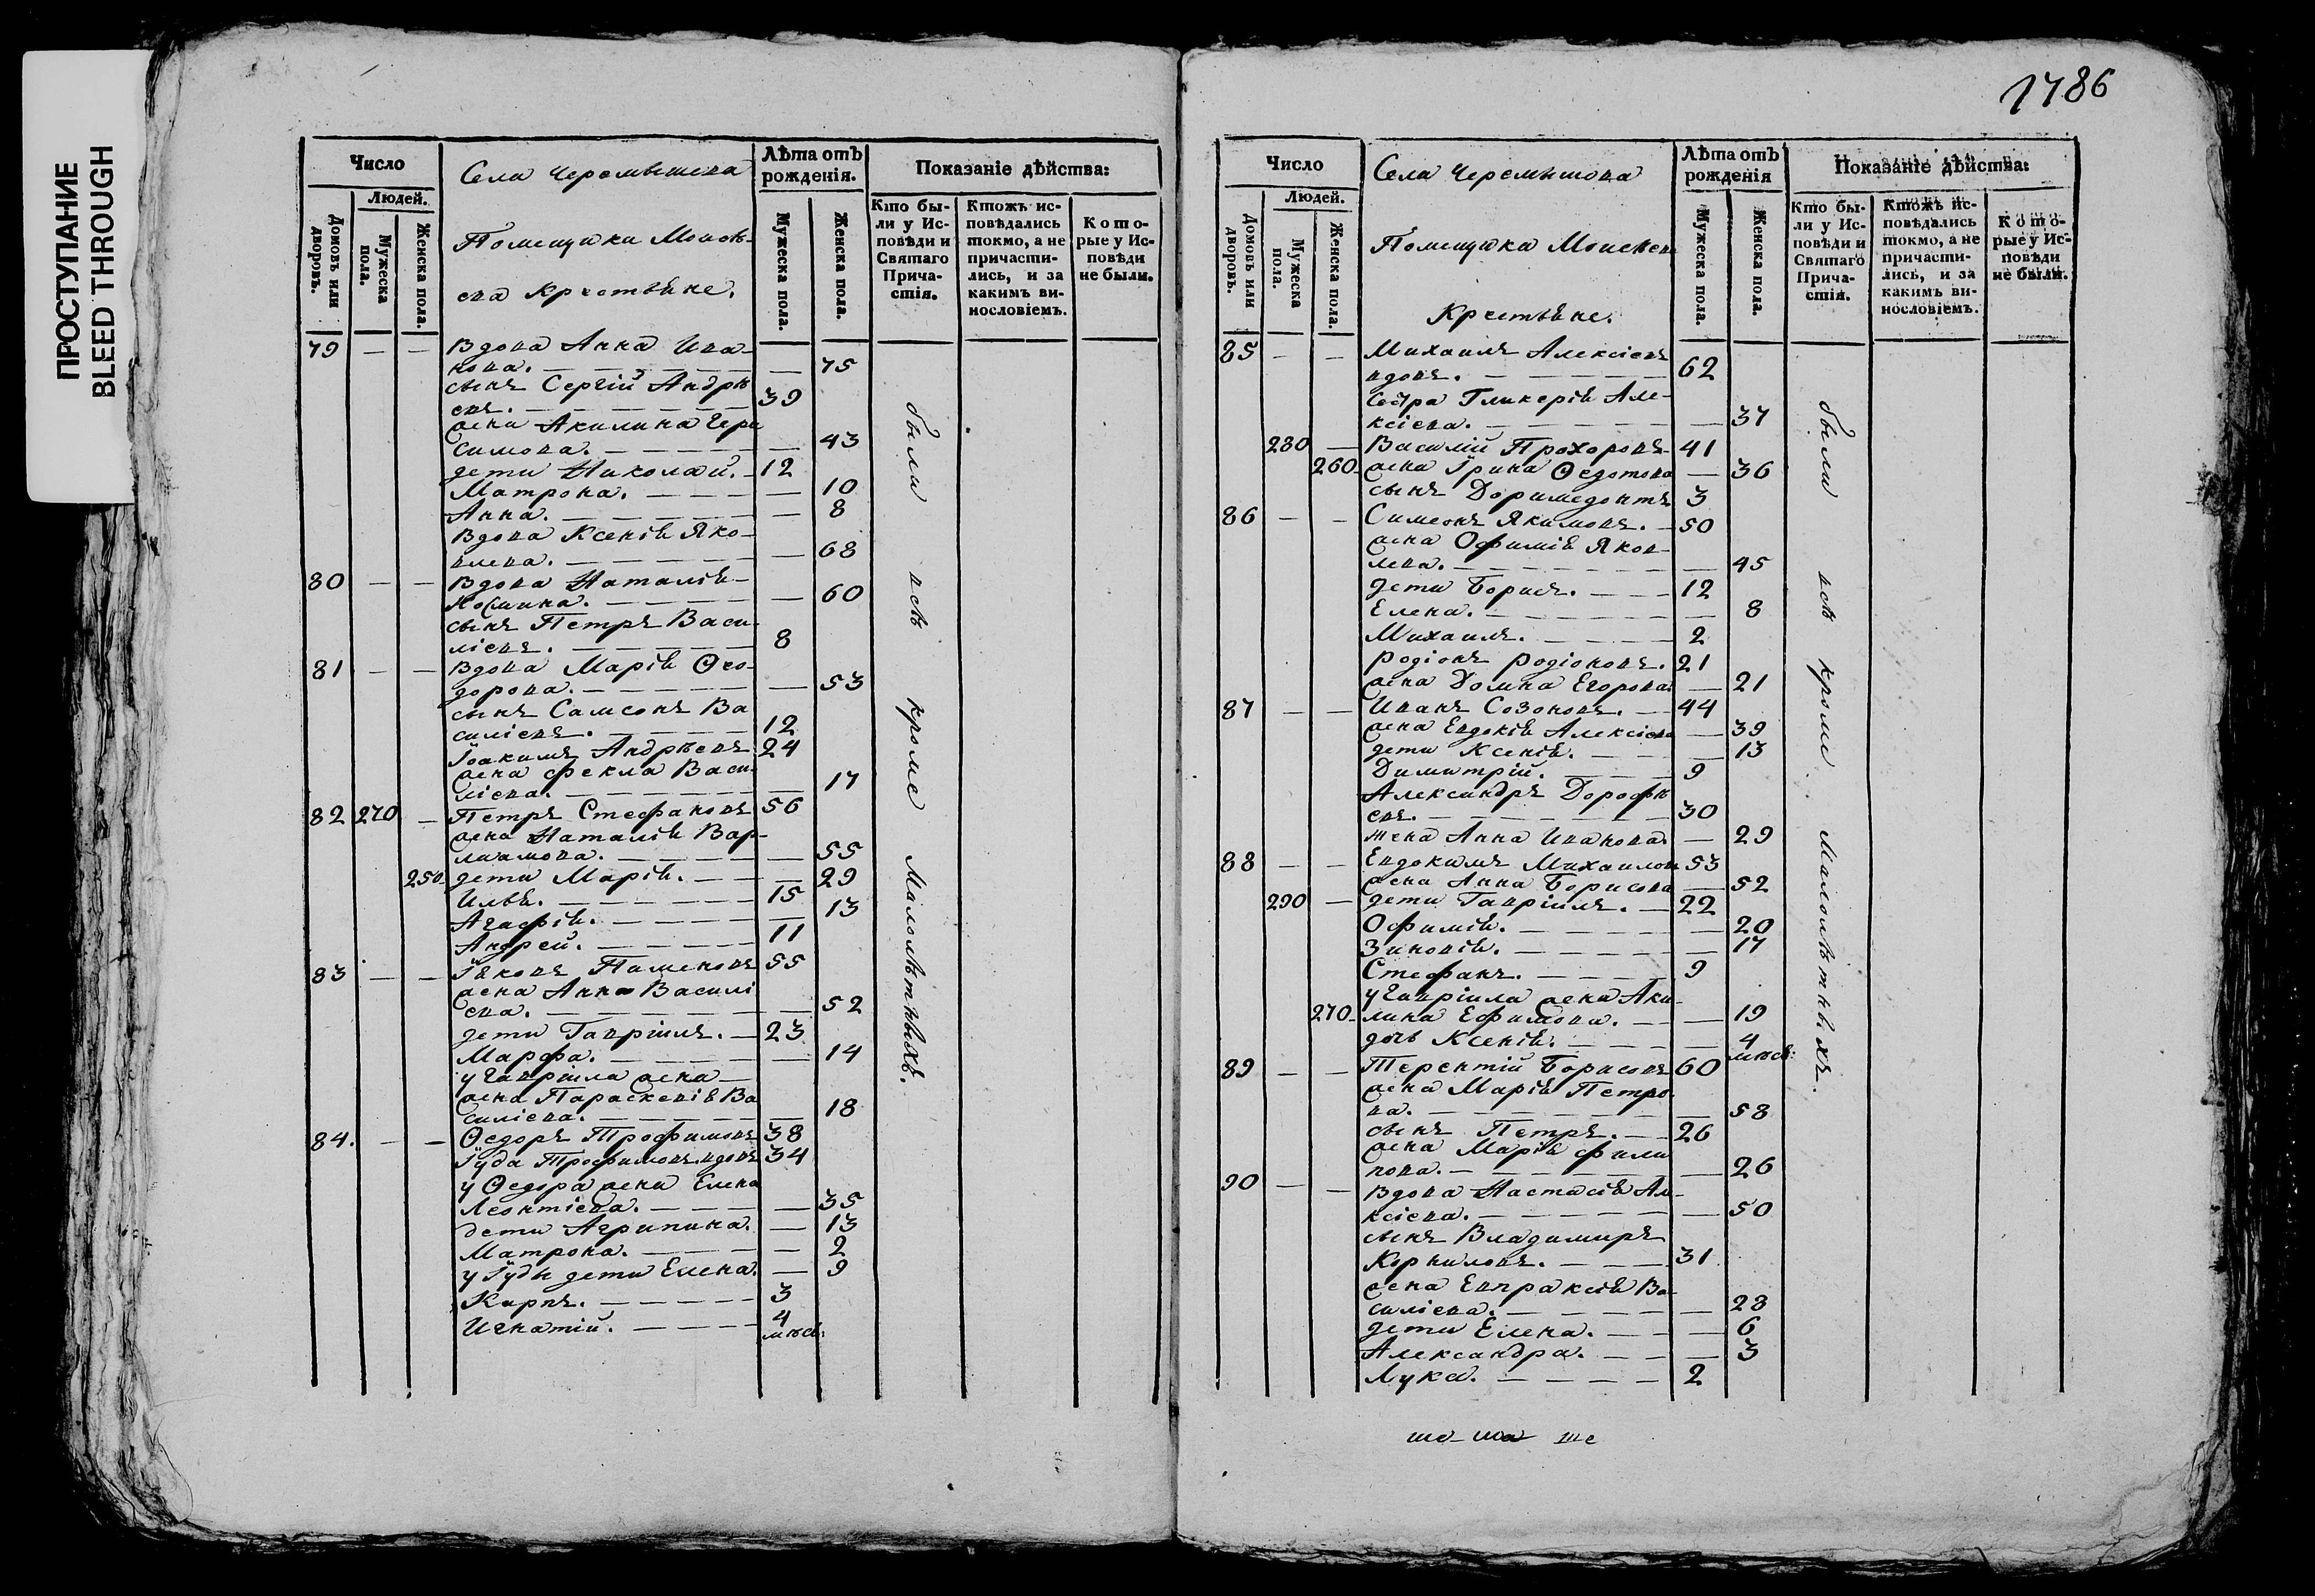 ПРОСТУПАНИЕ
BLEED THROUGH
1786
Число
Людей.
Домовъ или дворовъ.
Мужеска пола.
Женска пола.
Села Черемышева
Помещика Моисѣ-
ева Крестьѣне.
Лѣта отъ рожденія.
Мужеска пола.
Женска пола.
Показаніе дѣйства:
Кто бы-
ли у Ис-
повѣди и
Святаго
Прича-
стія.
Ктожъ ис-
повѣдались
токмо, а не
причасти-
лись, и за
какимъ ви-
нословіемъ.
Кото-
рые у Ис-
повѣди
не были.
79 — — Вдова Анна Ива-
нова. — 75
сынъ Сергій Андрѣ
евъ. — 39
жена Акилина Гера
симова. — 43
дети Николай. — 12
Матрона. — 10
Анна. — 8
Вдова Ксенія Яко-
влева. — 68
80 — — Вдова Наталія
— 60
сынъ Петръ Васи-
ліевъ. — 8
81 — — Вдова Марія Ѳео-
дорова. — 53
сынъ Самсонъ Ва
силіевъ. — 12
Іоакимъ Андрѣевъ 24
жена Фекла Васи-
ліева. — 17
82 270 — Петръ Стефановъ 56
жена Наталія Вар-
лаамова. — 55
250 дети Марія. — 29
Илья. — 15
Агафія. — 13
Андрей. — 11
83 — — Іаковъ Пименовъ 55
жена Анна Василі
ева. — 52
дети Гавріилъ. — 23
Марфа. — 14
у Гавріила жена —
жена Параскевія Ва
силіева. — 18
84. — — Ѳедоръ Трофимовъ 38
Іуда Трофимовъ вдовъ 34
у Ѳедора жена Елена
Леонтіева. — 35
дети Агрипина. — 13
Матрона. — 2
у Іуды дети Елена. — 9
Карпъ. — 3
Игнатій. — 4
мѣсѣ:
были всѣ кроме малолѣтныхъ.
Число
Людей.
Домовъ или дворовъ.
Мужеска пола.
Женска пола.
Села Черемышова
Помещика Моисѣева
Крестьѣне.
Лѣта отъ рожденія
Мужеска пола.
Женска пола.
Показаніе дѣйства:
Кто бы-
ли у Ис-
повѣди и
Святаго
Прича-
стія.
Ктожъ ис-
повѣдались
токмо, а не
причасти-
лись, и за
какимъ ви-
нословіемъ.
Кото-
рые у Ис-
повѣди
не были.
85 — — Михаилъ Алексіевъ
вдовъ. — 62
Сестра Гликерія Але-
ксіева. — 37
280 — Василій Прохоровъ 41
260 жена Ірина Ѳедотова — 36
сынъ Доримедонтъ 3
86 — — Симеонъ Якимовъ. — 50
жена Офимія Яков-
лева. — 45
дети Борисъ. — 12
Елена. — 8
Михаилъ. — 2
Родіонъ Родіоновъ. 21
жена Домна Егорова. — 21
87 — — Иванъ Созоновъ. — 44
жена Евдокія Алексіева — 39
дети Ксенія. — 13
Димитрій. — 9
Александръ Дорофѣ
евъ. — 30
жена Анна Иванова — 29
88 — — Евдокимъ Михаиловъ 53
жена Анна Борисова — 52
290 — дети Гавріилъ. — 22
Офимія. — 20
Зиновія. — 17
Стефанъ. — 9
у Гавріила жена Аки-
270 лина Ефимова. — 19
дочь Ксенія. — 4
мѣсѣ:
89 — — Терентій Борисовъ 60
жена Марія Петро-
ва. — 58
сынъ Петръ. — 26
жена Марія Фили
пова. — 26
90 — — Вдова Настасія Але-
ксіева. — 50
сынъ Владимиръ
Корниловъ. — 31
жена Евпраксія Ва-
силіева. — 28
дети Елена. — 6
Александра. — 3
Лука. — 2
были всѣ кроме малолѣтныхъ.